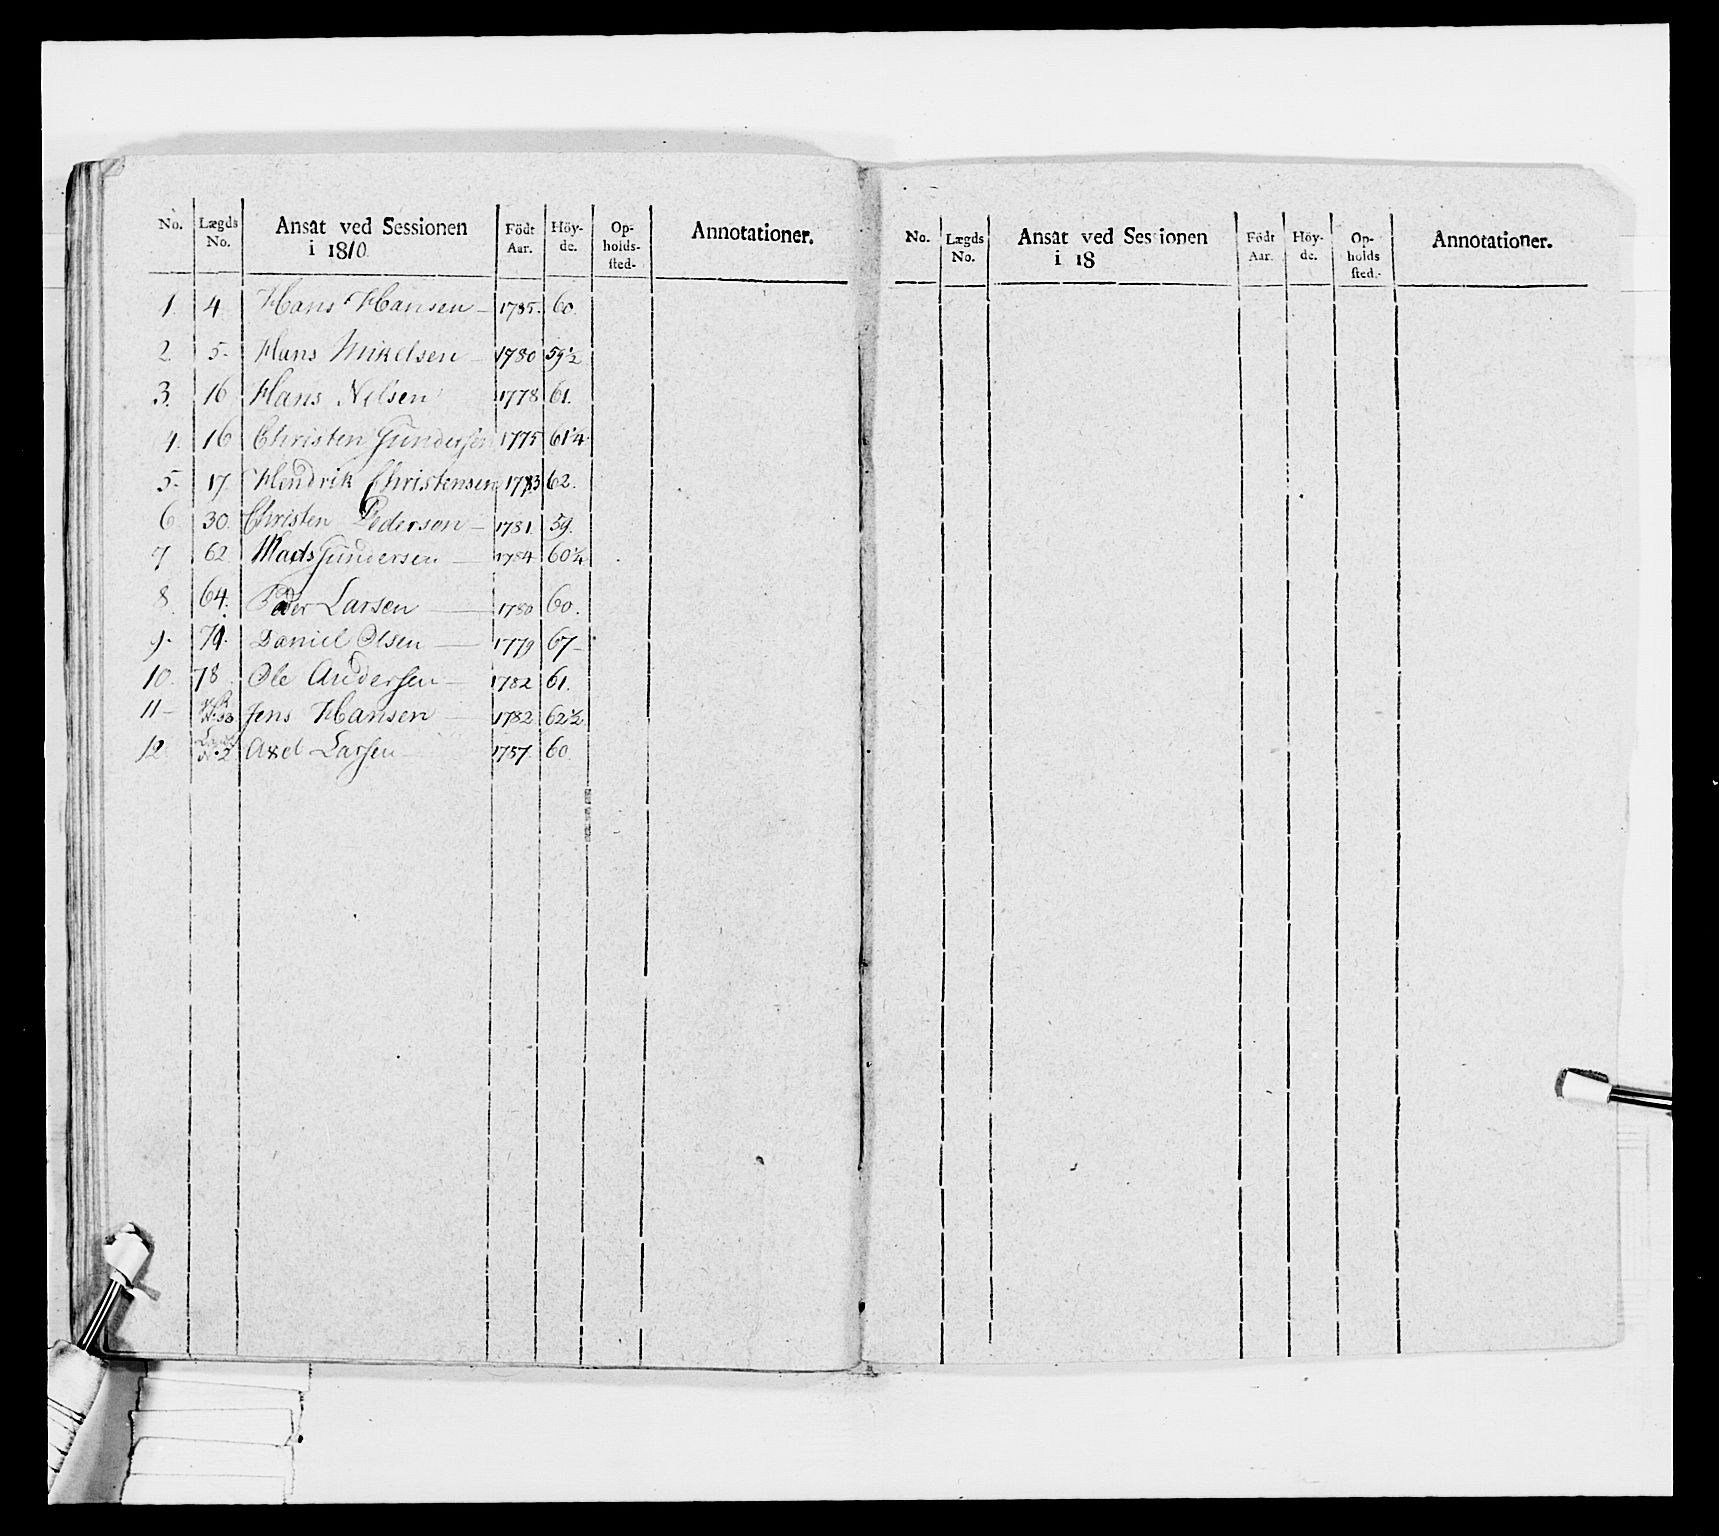 No. Lægds No. Ansat ved Sessionen i 1810. Födt Aar. Höyde. Opholdssted. Annotationer.
1. 4 Hans Hansen – 1785. 60.
2. 5. Hans Mikelsen – 1780 59½
3. 16 Hans Nelsen 1778 61.
4. 16 Christen Gundersen 1775 61¼
5. 17. Hendrik Christensen 1783 62.
6. 30. Christen Pedersen – 1781. 59.
7 62. Mads Gundersen – 1784. 60¼
8. 64. Peder Larsen – 1780 60.
9. 74. Daniel Olsen – 1779 67–
10. 78. Ole Andersen – 1782 61.
11– Jens Hansen – 1782 62½
12. No. 2 Axel Larsen – 1757. 60
No. Lægds No. Ansat ved Sessionen i 18 Födt Aar. Höyde. Opholds sted. Annotationer.